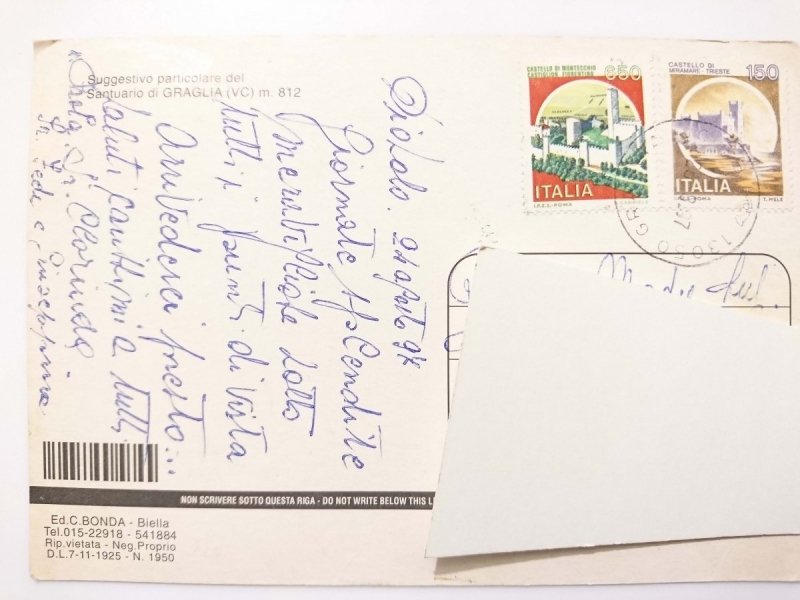 Suggestivo particolare del
Santuario di GRAGLIA (VC) m. 812
CASTELLO DI MONTECCHIO
CASTIGLION FIORENTINO
650
ITALIA
I.P.Z.S. - ROMA
CASTELLO DI
MIRAMARE - TRIESTE
150
ITALIA
I.P.Z.S. - ROMA
T. MELE
13050
24 agosto 94
Giornate splendide
meravigliose sotto
tutti i punti di vista
Arrivederci presto...
saluti carissimi a tutti
Sr. Clorinda
NON SCRIVERE SOTTO QUESTA RIGA - DO NOT WRITE BELOW THIS LI
Ed.C.BONDA - Biella
Tel.015-22918 - 541884
Rip.vietata - Neg.Proprio
D.L.7-11-1925 - N. 1950